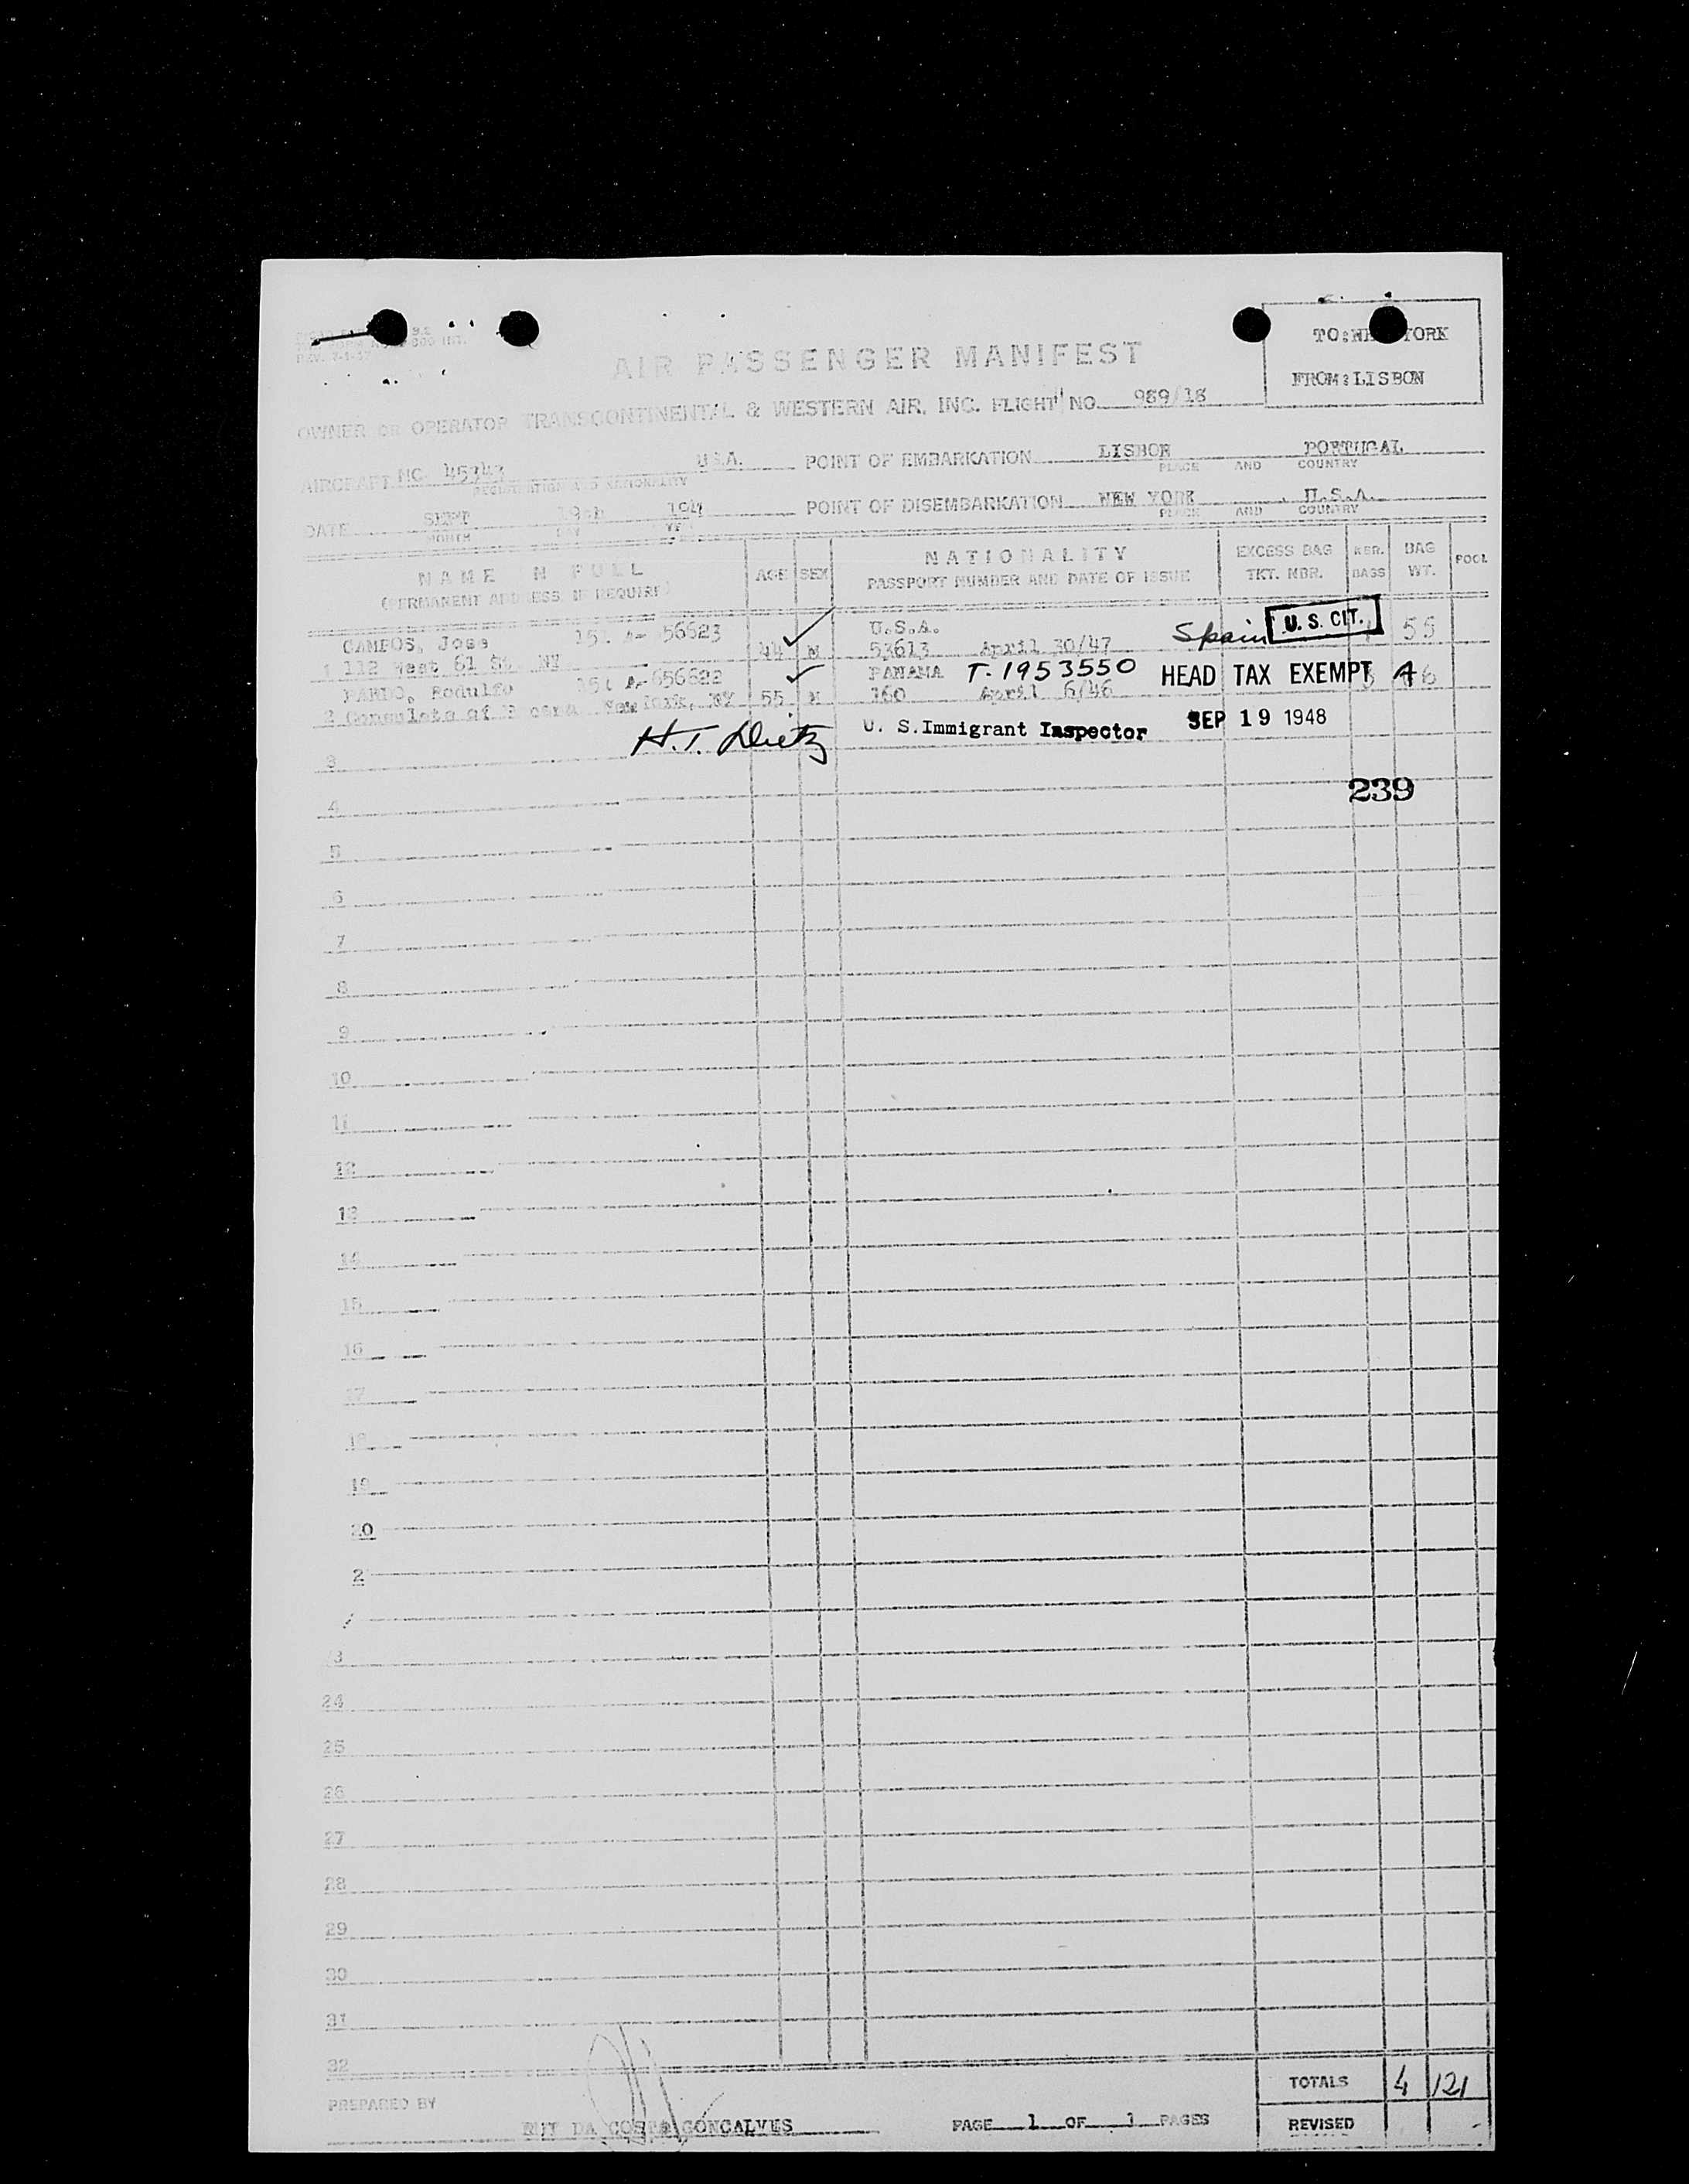 TO: NEW YORK
FROM: LISBON
REV.
AIR PASSENGER MANIFEST
OWNER OR OPERATOR TRANSCONTINENTAL & WESTERN AIR, INC. FLIGHT NO. 989/18
AIRCRAFT NC U.S.A. POINT OF EMBARKATION LISBON PORTUGAL
REGISTRATION AND NATIONALITY PLACE AND COUNTRY
DATE SEPT POINT OF DISEMBARKATION NEW YORK U.S.A.
MONTH DAY YEAR PLACE AND COUNTRY
NAME IN FULL AGE SEX NATIONALITY EXCESS BAG NBR. BAG POOL
(PERMANENT ADDRESS IF REQUIRED) PASSPORT NUMBER AND DATE OF ISSUE TKT. NBR. BAGS WT.
CAMPOS, Jose 56623 U.S.A. Spain U. S. CIT. 55
1 112 West 61 St. NY 44 M 53613 April 30/47
PARDO, Rodulfo 656622 PANAMA T-1953550 HEAD TAX EXEMPT
2 Consulate of New York, NY 55 M 160 April 6/46
H.T. Dietz U. S. Immigrant Inspector SEP 19 1948
3
239
4
5
6
7
8
9
10
11
12
13
14
15
16
17
18
19
20
2
3
24
25
26
27
28
29
30
31
32
TOTALS 4 121
PREPARED BY
RUY DA COSTA GONCALVES PAGE 1 OF 1 PAGES REVISED